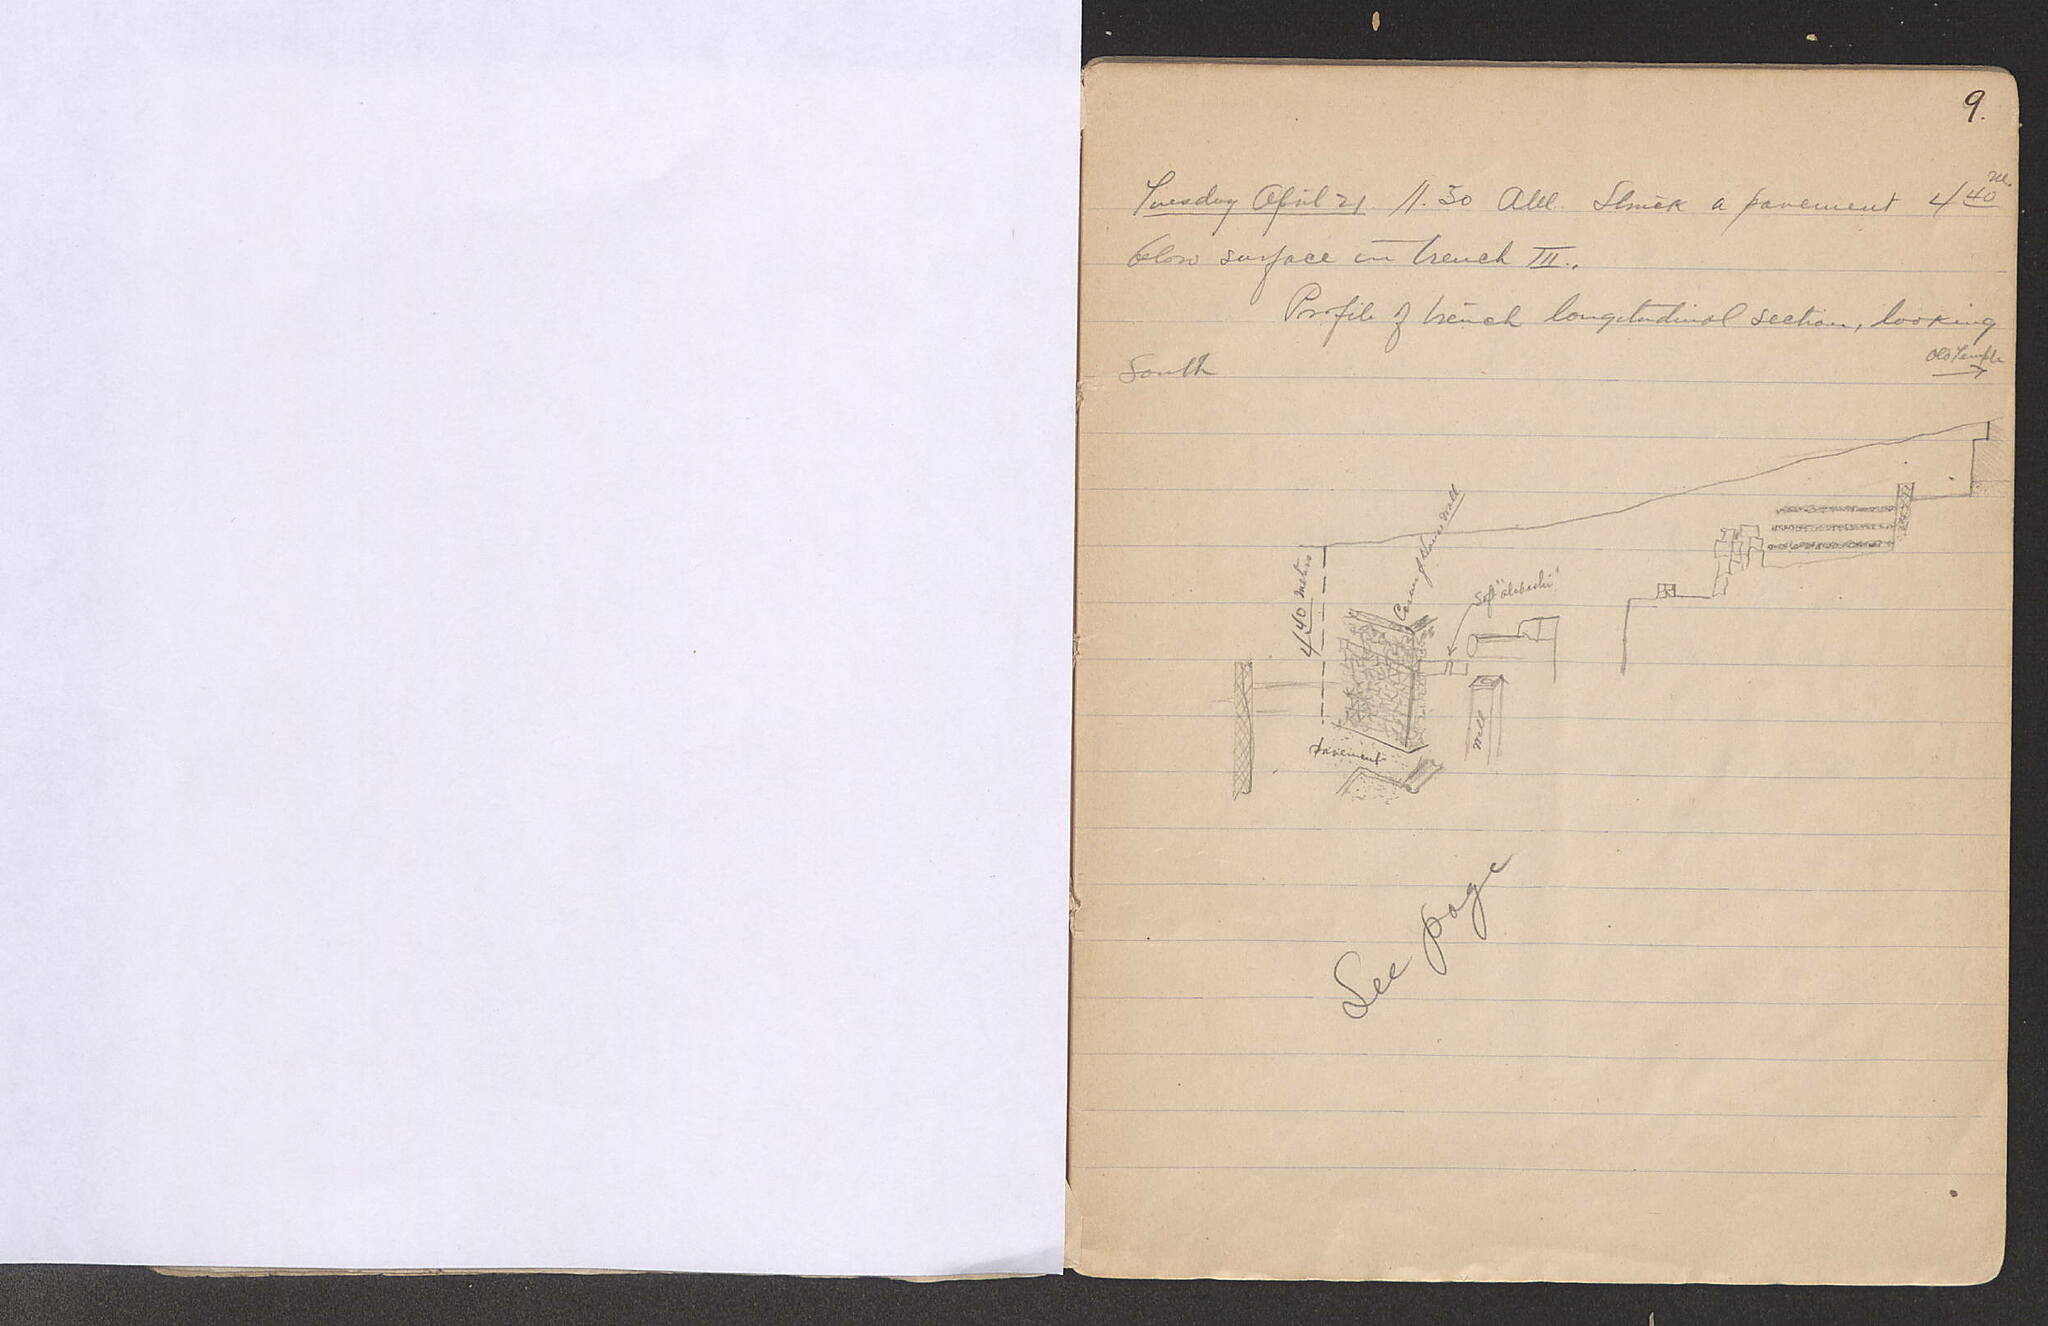 9.
Tuesday April 21 11.30 AM. Struck a pavement 4 40 m.
below surface in trench III.
Profile of trench longitudinal section, looking
South
Old Temple
4 40 meters
Corner of House wall
Soft
well
pavement
See page